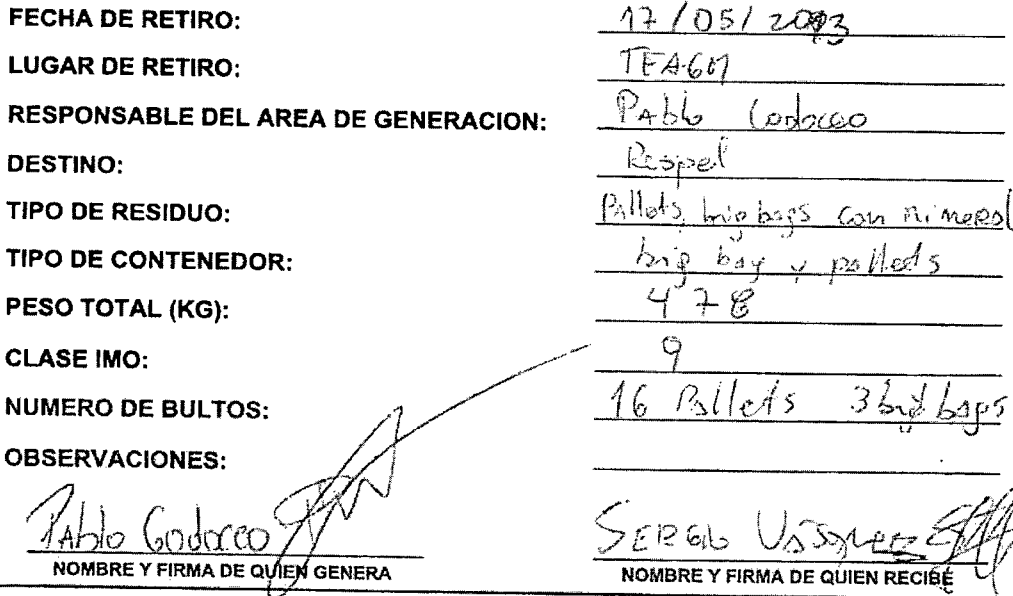 FECHA DE RETIRO: 17/05/2023
LUGAR DE RETIRO: TEAGM
RESPONSABLE DEL AREA DE GENERACION: Pablo Godoceo
DESTINO: Respel
TIPO DE RESIDUO: Pallets, big bags con mineral
TIPO DE CONTENEDOR: big bag y pallets
PESO TOTAL (KG): 478
CLASE IMO: 9
NUMERO DE BULTOS: 16 Pallets 3 big bags
OBSERVACIONES:
Pablo Godoceo SERGIO VASQUEZ
NOMBRE Y FIRMA DE QUIEN GENERA NOMBRE Y FIRMA DE QUIEN RECIBE